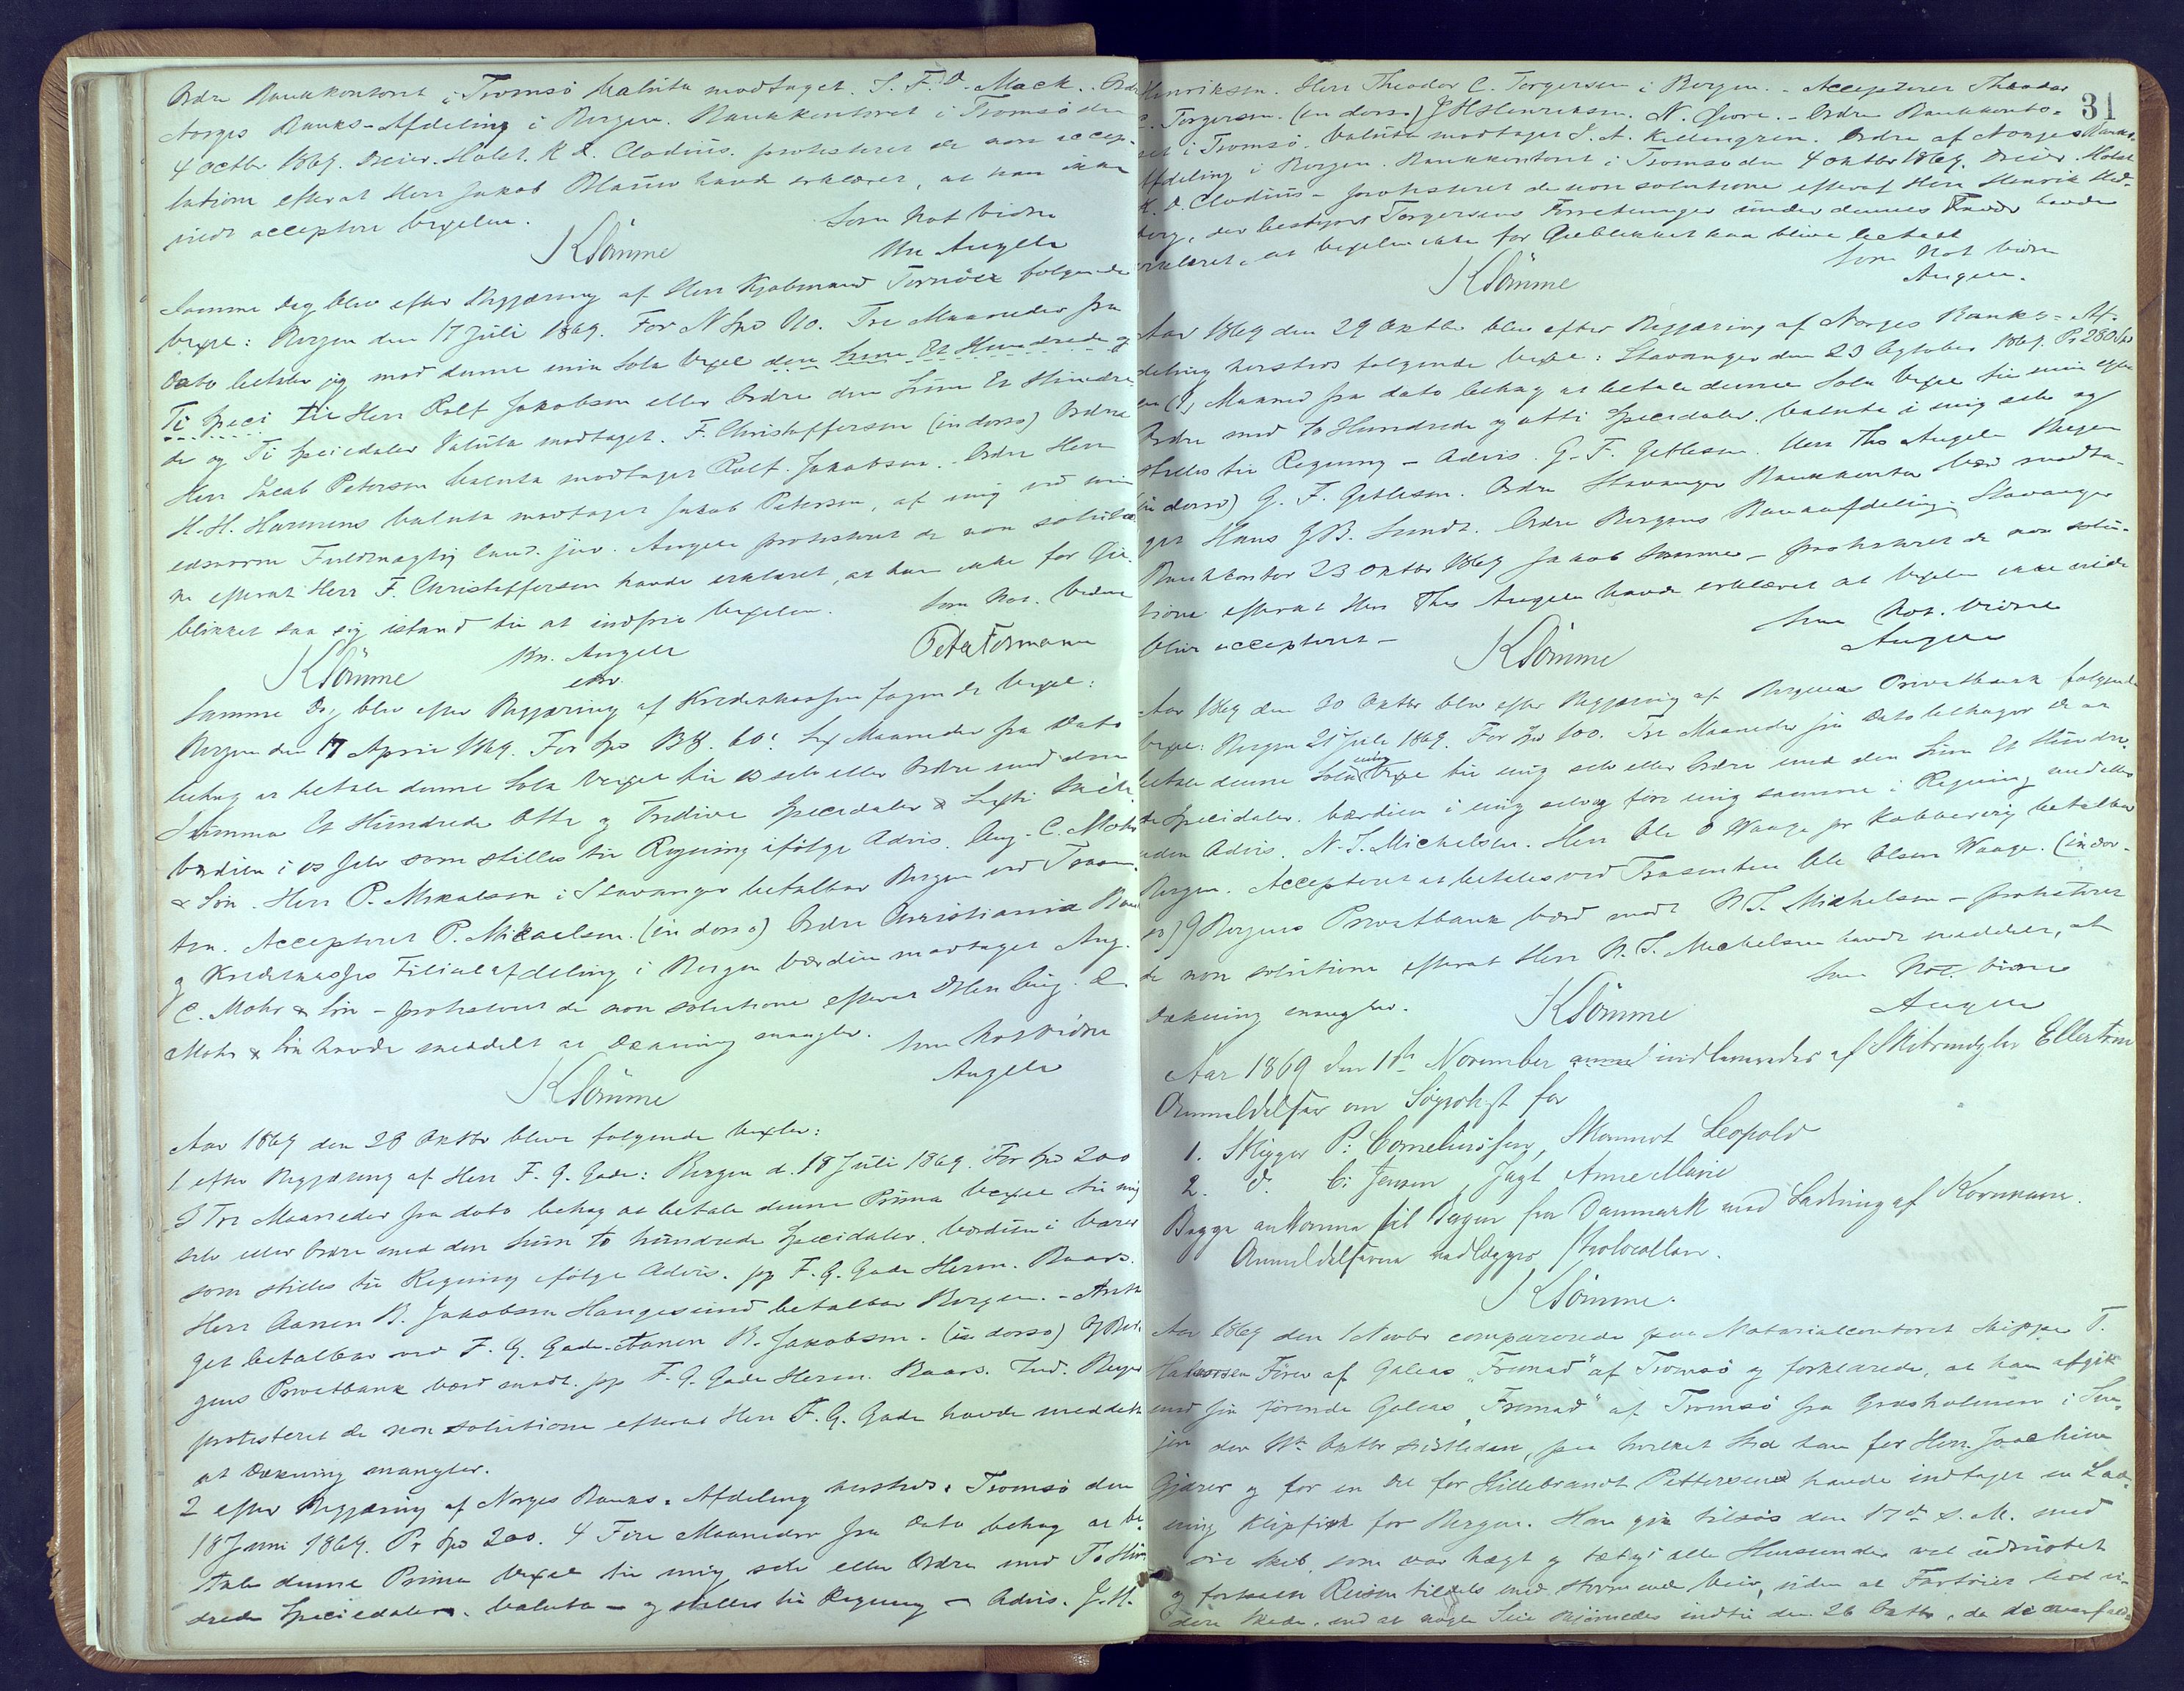 Ordre Bankkontoret i Tromsö Valuta modtaget. J. F. D. Mack. Ordre
Norges Banks-Afdeling i Bergen. Bankkontoret i Tromsö den
4 Octbr 1869. Dreier. Holst. K. D. Clodius. protesteret de non accep-
tatione efterat Herr Jakob Blauw havde erklæret, at han ikke
vilde acceptere vexelen.
Som Not vidne
KLömme
Chr Angell
Samme Dag blev efter Begjæring af Herr Kjøbmand Tornöe følgende
vexel: Bergen den 17 Juli 1869. For N Spd 110. Tre Maaneder fra
Dato betaler jeg mod denne min Sola Vexel den Sum Et Hundrede og
Ti Speci til Herr Rolf Jakobsen eller Ordre den Sum Et Hundre-
de og Ti Speciedaler Valuta modtaget. F. Christoffersen (in dorso) Ordre
Herr Jacob Petersen Valuta modtaget Rolf Jakobsen. Ordre Herr
H. H. Harmens Valuta modtaget Jakob Petersen, af mig ved min
edsvorne Fuldmægtig Cand. jur. Angell protesteret de non solutio-
ne efterat Herr F. Christoffersen havde erklæret, at han ikke for Øie-
blikket saa sig istand til at indfrie Vexelen.
Som Not. Vidne
KLömme
Chr. Angell
Peter Formann
Samme Dag blev efter Begjæring af Kreditkassen følgende Vexel:
Bergen den 17 April 1869. For Spd 138. 60s. Sex Maaneder fra Dato
behag at betale denne Sola Vexel til os selv eller Ordre med den
Summa Et Hundrede Otte og Tredive Speciedaler & Sexti Skill
Værdien i os selv som stilles til Regning ifölge Advis. Aug. C. Mohr
& Sön. Herr P. Mikalsen i Stavanger betalbar Bergen ved Trasen-
ten. Accepteret P. Mikaelsen. (in dorso) Ordre Christiania Bank
og Kreditkasses Filialafdeling i Bergen Værdien modtaget Aug.
C. Mohr & Sön - protesteret de non solutione efterat Herr Aug. C.
Mohr & Sön havde meddelt at Dækning mangler.
Som Not Vidne
KLömme
Angell
Aar 1869 den 28 Oktbr bleve følgende Vexler:
1 efter Begjæring af Herr F. G. Gade: Bergen d. 18 Juli 1869. For Spd 200
3 Tre Maaneder fra dato behag at betale denne Prima Vexel til mig
selv eller Ordre med den Sum to hundrede Speciedaler. Værdien i Varer
som stilles til Regning ifølge Advis. pp F. G. Gade Herm. Baars.
Herr Aanen B. Jakobsen Haugesund betalbar Bergen. - Anta-
get betalbar ved F. G. Gade. Aanen B. Jakobsen. (in dorso) O/ Ber-
gens Privatbank Værd modt. pp F. G. Gade Herm. Baars. Ind. Bergen
protesteret de non solutione efterat Herr F. G. Gade havde meddelt
at Dækning mangler.
2 efter Begjæring af Norges Banks-Afdeling hersteds: Tromsö den
18 Juni 1869. Pr Spd 200. 4 Fire Maaneder fra Dato behag at be-
tale denne Prima Vexel til mig selv eller Ordre med To Hun-
drede Speciedaler. Valuta - og stilles til Regning - Advis. J. H.
31
Henriksen. Herr Theodor C. Torgersen i Bergen. - Accepterer Theodor
C. Torgersen. (in dorso) J H Henriksen. N. Gjæve. - Ordre Bankkonto-
ret i Tromsö. Valuta modtaget J. A. Killengreen. Ordre af Norges Banks-
Afdeling i Bergen. Bankkontoret i Tromsø den 4 Oktbr 1869. Dreier Holst
K. D. Clodius - protesteret de non solutione efterat Herr Henrik Hed-
berg, der bestyrer Torgersens Forretninger under dennes Fravær havde
erklæret, at Vexelen ikke for Øieblikket kan blive betalt
Som Not Vidne
KLömme
Angell.
Aar 1869 den 29 Oktbr blev efter Begjæring af Norges Banks-Af-
deling hersteds følgende Vexel: Stavanger den 23 October 1869. Pr 280 Spd
en (1) Maaned fra dato behag at betale denne Sola Vexel til min egen
Ordre med to Hundrede og otti Speciedaler, Valuta i mig selv og
stilles til Regning - Advis. G. F. Gittlesen. Herr Ths Angell Bergen
(in dorso) G. F. Gittlesen. Ordre Stavanger Bankkontor Værd modta-
get Hans G B. Sundt. Ordre Bergens Bankafdeling. Stavanger
Bankkontor 23 Oktbr 1869 Jakob Sømme - protesteret de non solu-
tione efterat Herr Ths Angell havde erklæret at Vexelen ikke vilde
blive accepteret -
Som Not. Vidne
KLömme
Angell
Aar 1869 den 30 Oktbr blev efter Begjæring af Bergens Privatbank følgende
Vexel: Bergen 21 Juli 1869. For Spd 100. Tre Maaneder fra Dato behager De at
betale denne Sola Vexel til mig selv eller Ordre med den Sum Et Hundre-
de Speciedaler. Værdien i mig selv og före mig samme i Regning med eller
uden Advis. N. S. Michelsen. Herr Ole O Waage pr Kobbervig betalbar
Bergen. Accepteret at betales ved Trasenten Ole Olsen Waage. (in dor-
so) O/ Bergens Privatbank Værd modt N. S. Michelsen - protesteret
de non solutione efterat Herr N. S. Michelsen havde meddelt, at
Dækning mangler.
Som Not. Vidne
KLömme
Angell
Aar 1869 den 1ste November indleveredes af Skibsmægler Ellerhusen
Anmeldelser om Søprotest for
1. Skipper P. Corneliussen, Skonnert Leopold
2. D. C. Jensen, Jagt Anne Marie
Begge ankomne til Bergen fra Danmark med Ladning af Kornvarer.
Anmeldelserne vedlægges Protocollen.
KLömme.
Aar 1869 den 1 Novbr comparerede paa Notarialcontoret Skipper T.
Halvorsen Förer af Galeas "Fremad" af Tromsö og forklarede, at han afgik
med sin förende Galeas "Fremad" af Tromsö fra Græsholmen i Sen-
jen den 11te Oktbr sidstleden, paa hvilket Sted han for Herr Joachim
Gjæver og for en Del for Hillebrandt Pettersen havde indtaget en Lad-
ning Klipfisk for Bergen. Han gik tilsøs den 17de s. M. med
sit Skib, som var tægt og tæt og i alle Henseender vel udrustet
og fortsatte Reisen tildels med stormende Veir, uden at Fartöiet led vi-
dere Skade, end at nogle Seil skjörnedes indtil den 26 Oktbr, da de overfaldt